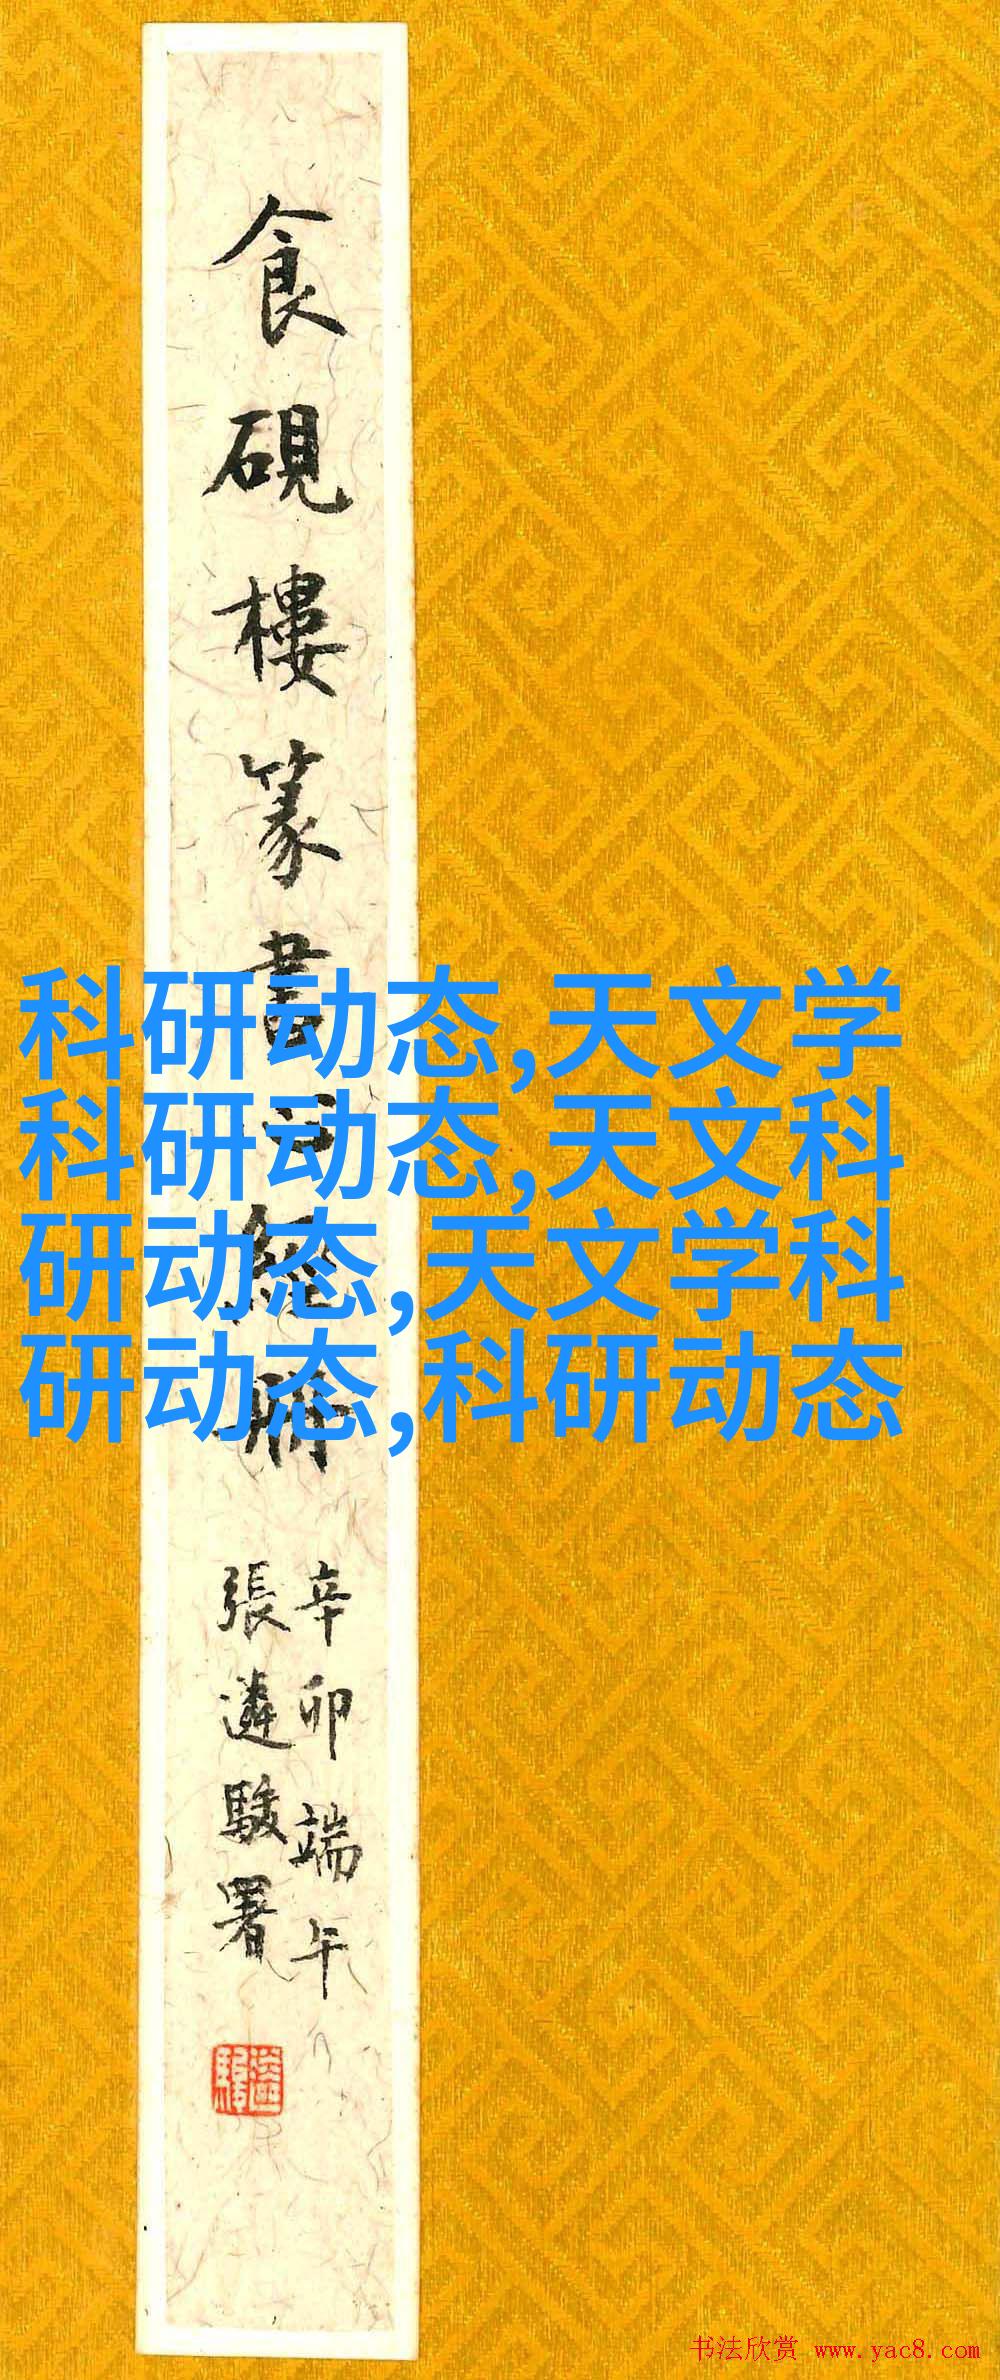 食硯樓篆書心經聯
辛卯端午
張遴駿署
遴駿
科研动态,天文学
科研动态,天文科
研动态,天文学科
研动态,科研动态
书法欣赏 www.yac8.com